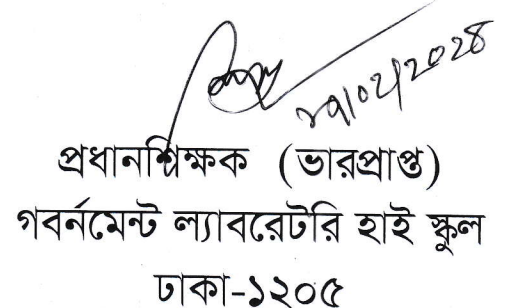 ২৭/০২/২০২৪
প্রধানশিক্ষক (ভারপ্রাপ্ত)
গবর্নমেন্ট ল্যাবরেটরি হাই স্কুল
ঢাকা-১২০৫